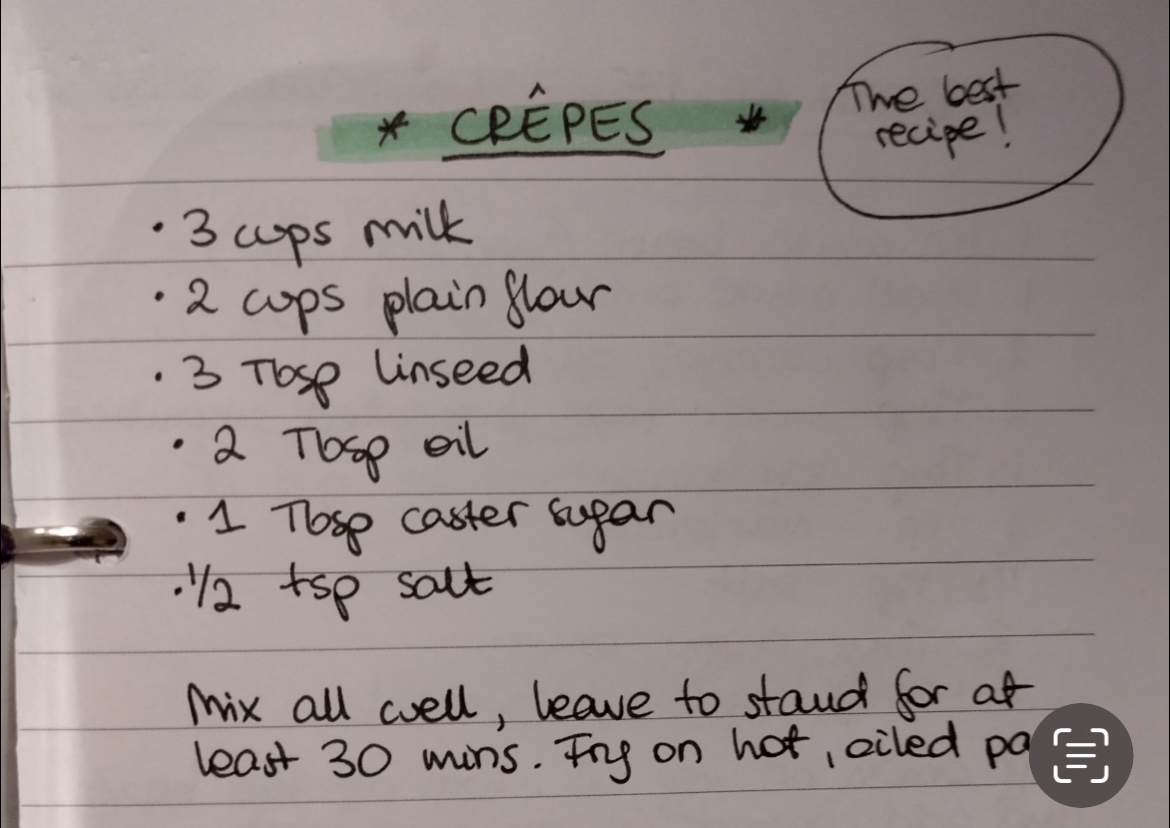 * CRÊPES *
The best
recipe!
· 3 cups milk
· 2 cups plain flour
· 3 Tbsp linseed
· 2 Tbsp oil
· 1 Tbsp caster sugar
· 1/2 tsp salt
Mix all well, leave to stand for at
least 30 mins. Fry on hot, oiled